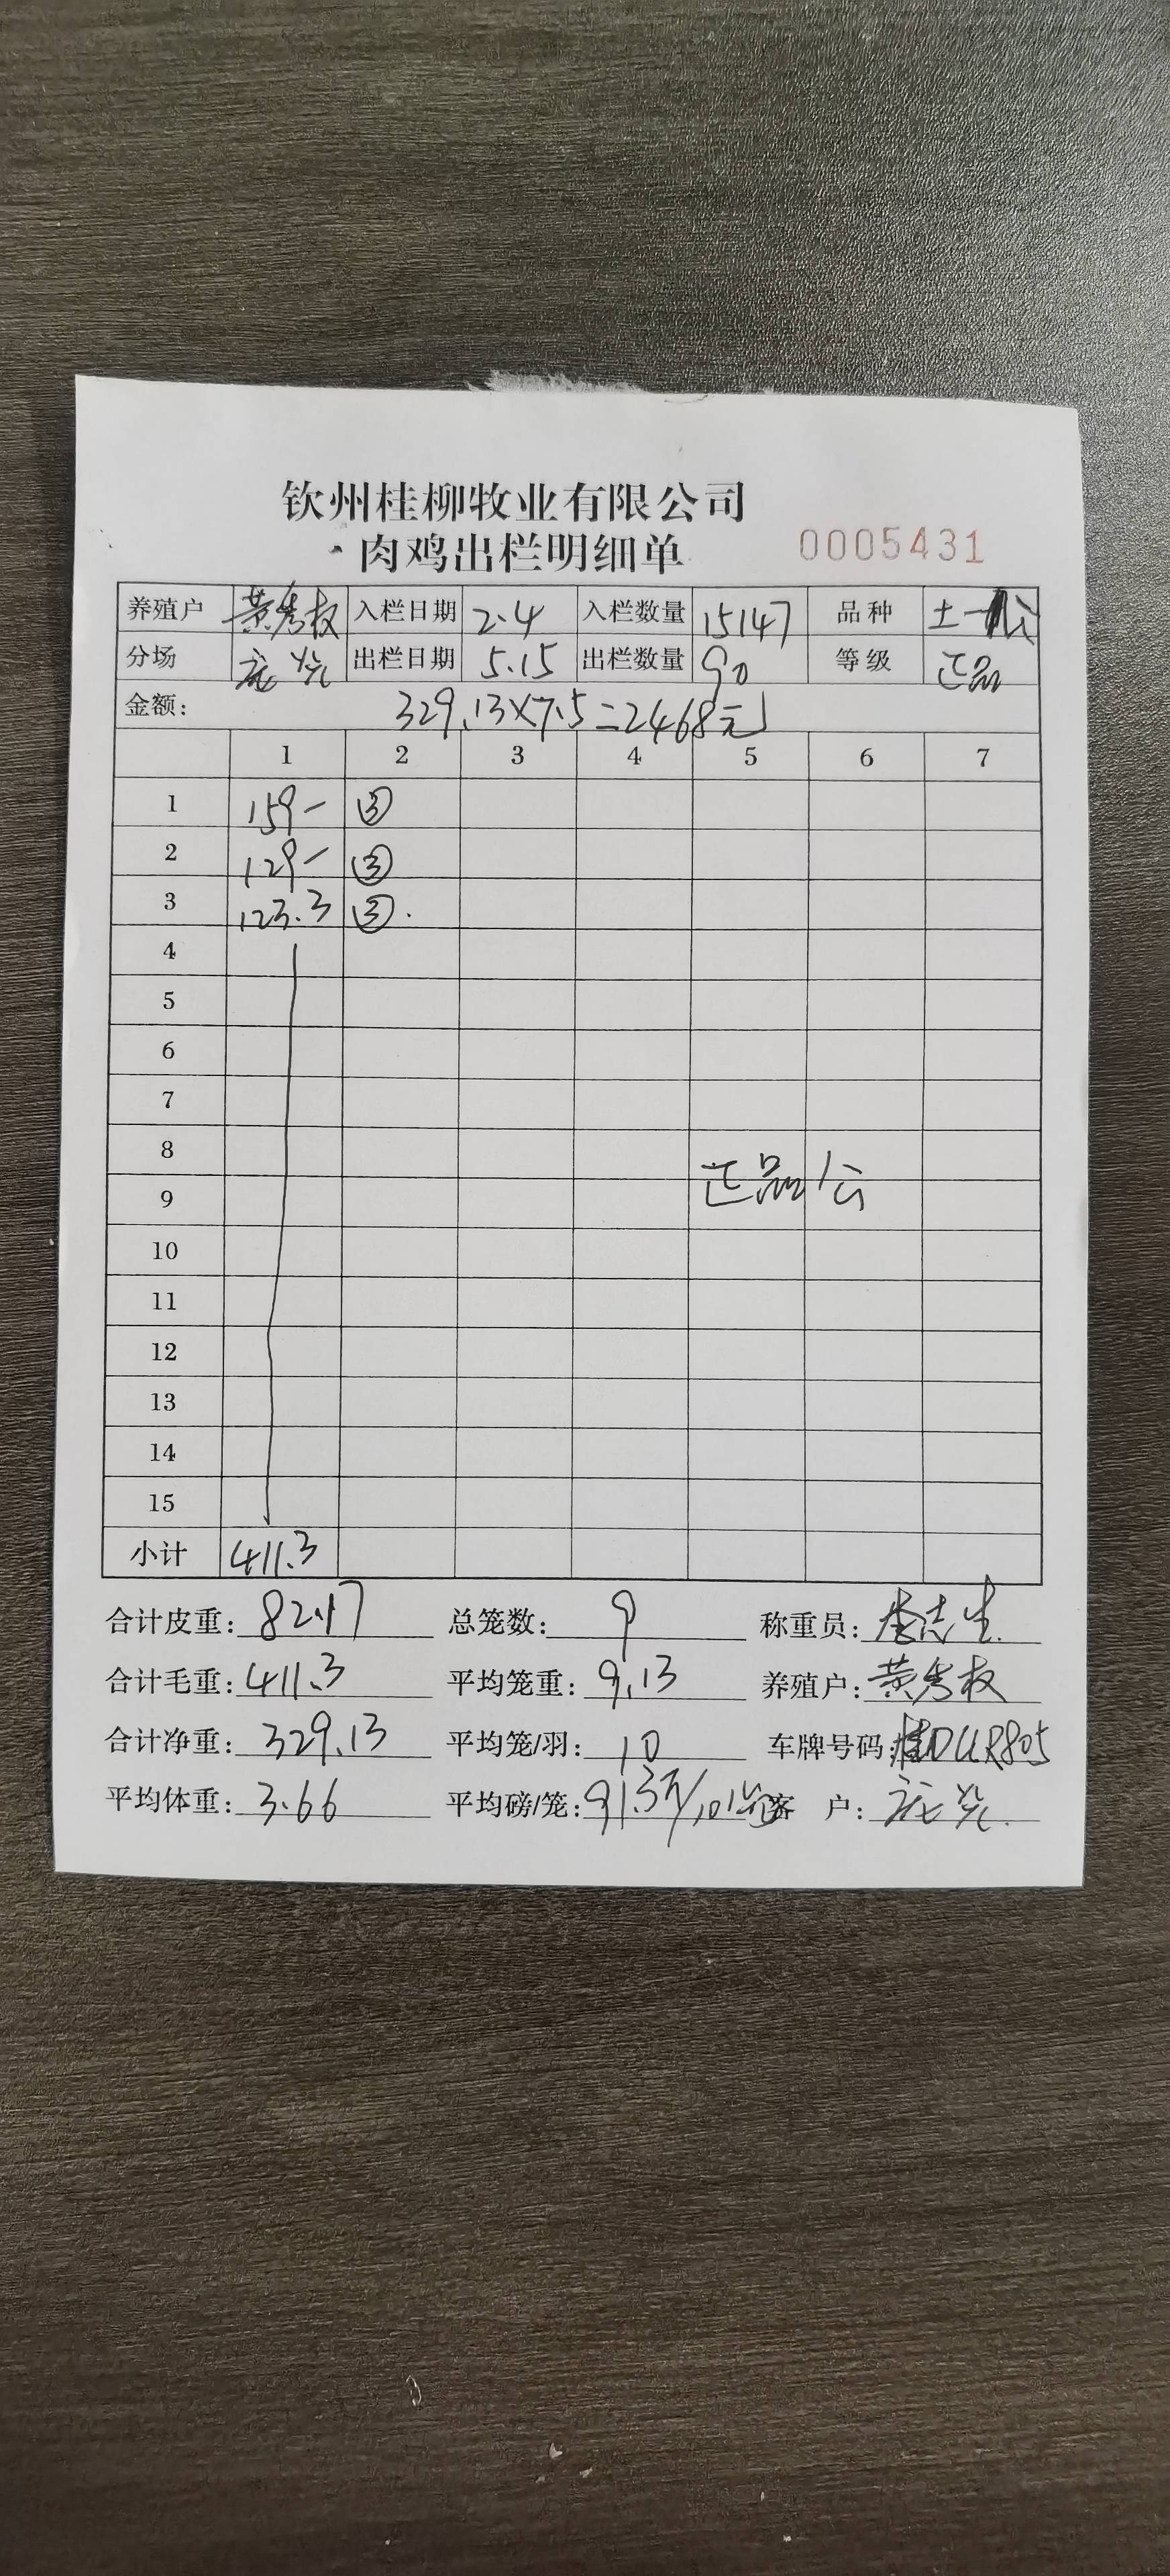 钦州桂柳牧业有限公司
肉鸡出栏明细单 0005431
养殖户 黄秀权 入栏日期 2.4 入栏数量 15147 品种 土一公
分场 庞 出栏日期 5.15 出栏数量 90 等级 正品
金额: 329.13×7.5=2468元
1 2 3 4 5 6 7
1 159- ③
2 129- ③
3 123.3 ③.
4
5
6
7
8
正品公
9
10
11
12
13
14
15
小计 411.3
合计皮重: 82.17 总笼数: 9 称重员: 李志生
合计毛重: 411.3 平均笼重: 9.13 养殖户: 黄秀权
合计净重: 329.13 平均笼/羽: 10 车牌号码: 桂DUR805
平均体重: 3.66 平均磅/笼: 91.3斤/10 客 户: 庞